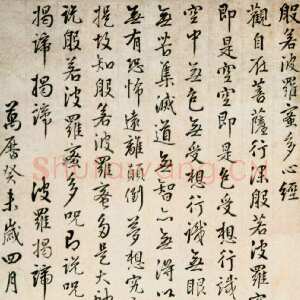 般若波羅蜜多心經
觀自在菩薩行深般若波羅
即是空空即是色受想行識
空中無色無受想行識無眼
無苦集滅道無智亦無得以
無有恐怖遠離顛倒夢想究
提故知般若波羅蜜多是大神
說般若波羅蜜多咒即說咒
揭諦揭諦 波羅揭諦
萬曆癸未歲四月